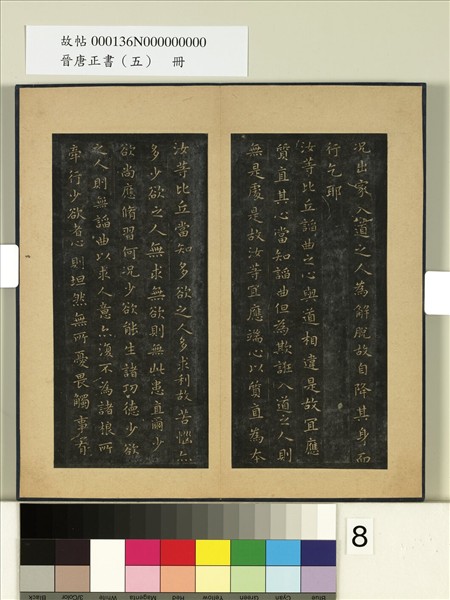 故帖 000136N000000000
晉唐正書（五） 冊
况出家入道之人為解脫故自降其身而
行乞耶
汝等比丘諂曲之心與道相違是故宜應
質直其心當知諂曲但為欺誑入道之人則
無是處是故汝等宜應端心以質直為本
汝等比丘當知多欲之人多求利故苦惱亦
多少欲之人無求無欲則無此患直爾少
欲尚應脩習何况少欲能生諸功德少欲
之人則無諂曲以求人意亦復不為諸根所
牽行少欲者心則坦然無所憂畏觸事有
8
Black 3/Color White Magenta Red Yellow Green Cyan Blue